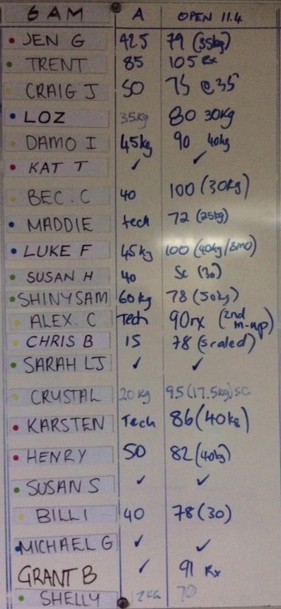 6 AM A OPEN 11.4
JEN G 425 79 (35kg)
TRENT 85 105 Rx
CRAIG J 50 75 @ 35
LOZ 35kg 80 30kg
DAMO I 45kg 90 40kg
KAT T ✓ ✓
BEC. C 40 100 (30kg)
MADDIE tech 72 (25kg)
LUKE F 45kg 100 (40kg/
SUSAN H 40 Sc (30)
SHINYSAM 60kg 78 (50kg)
ALEX. C Tech 90rx (2nd m-up)
CHRIS B 15 78 (scaled)
SARAH LJ ✓ ✓
CRYSTAL 20kg 95 (17.5kg) sc
KARSTEN Tech 86 (40kg)
HENRY 50 82 (40kg)
SUSAN S ✓ ✓
BILLI 40 78 (30)
MICHAEL G ✓ ✓
GRANT B ✓ 91 Rx
SHELLY 70